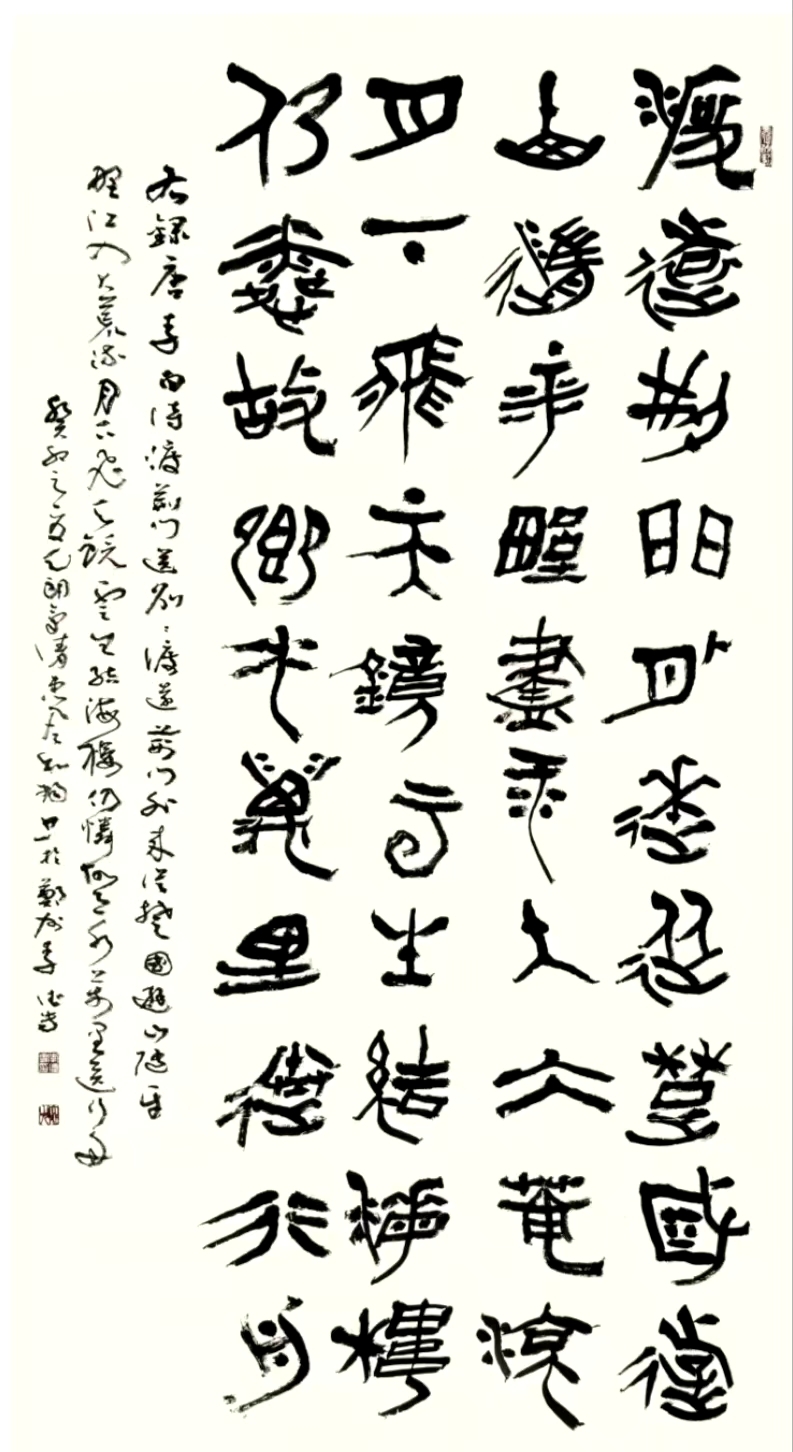 渡遠荊門外來從楚國遊
山隨平野盡江入大荒流
月下飛天鏡雲生結海樓
仍憐故鄉水萬里送行舟
右錄唐李白詩渡荊門送別渡遠荊門外來從楚國遊山隨平
野江入大荒流月下飛天鏡雲生結海樓仍憐故鄉水萬里送行舟
癸卯之夏天朗氣清惠風和暢書於鄭州李